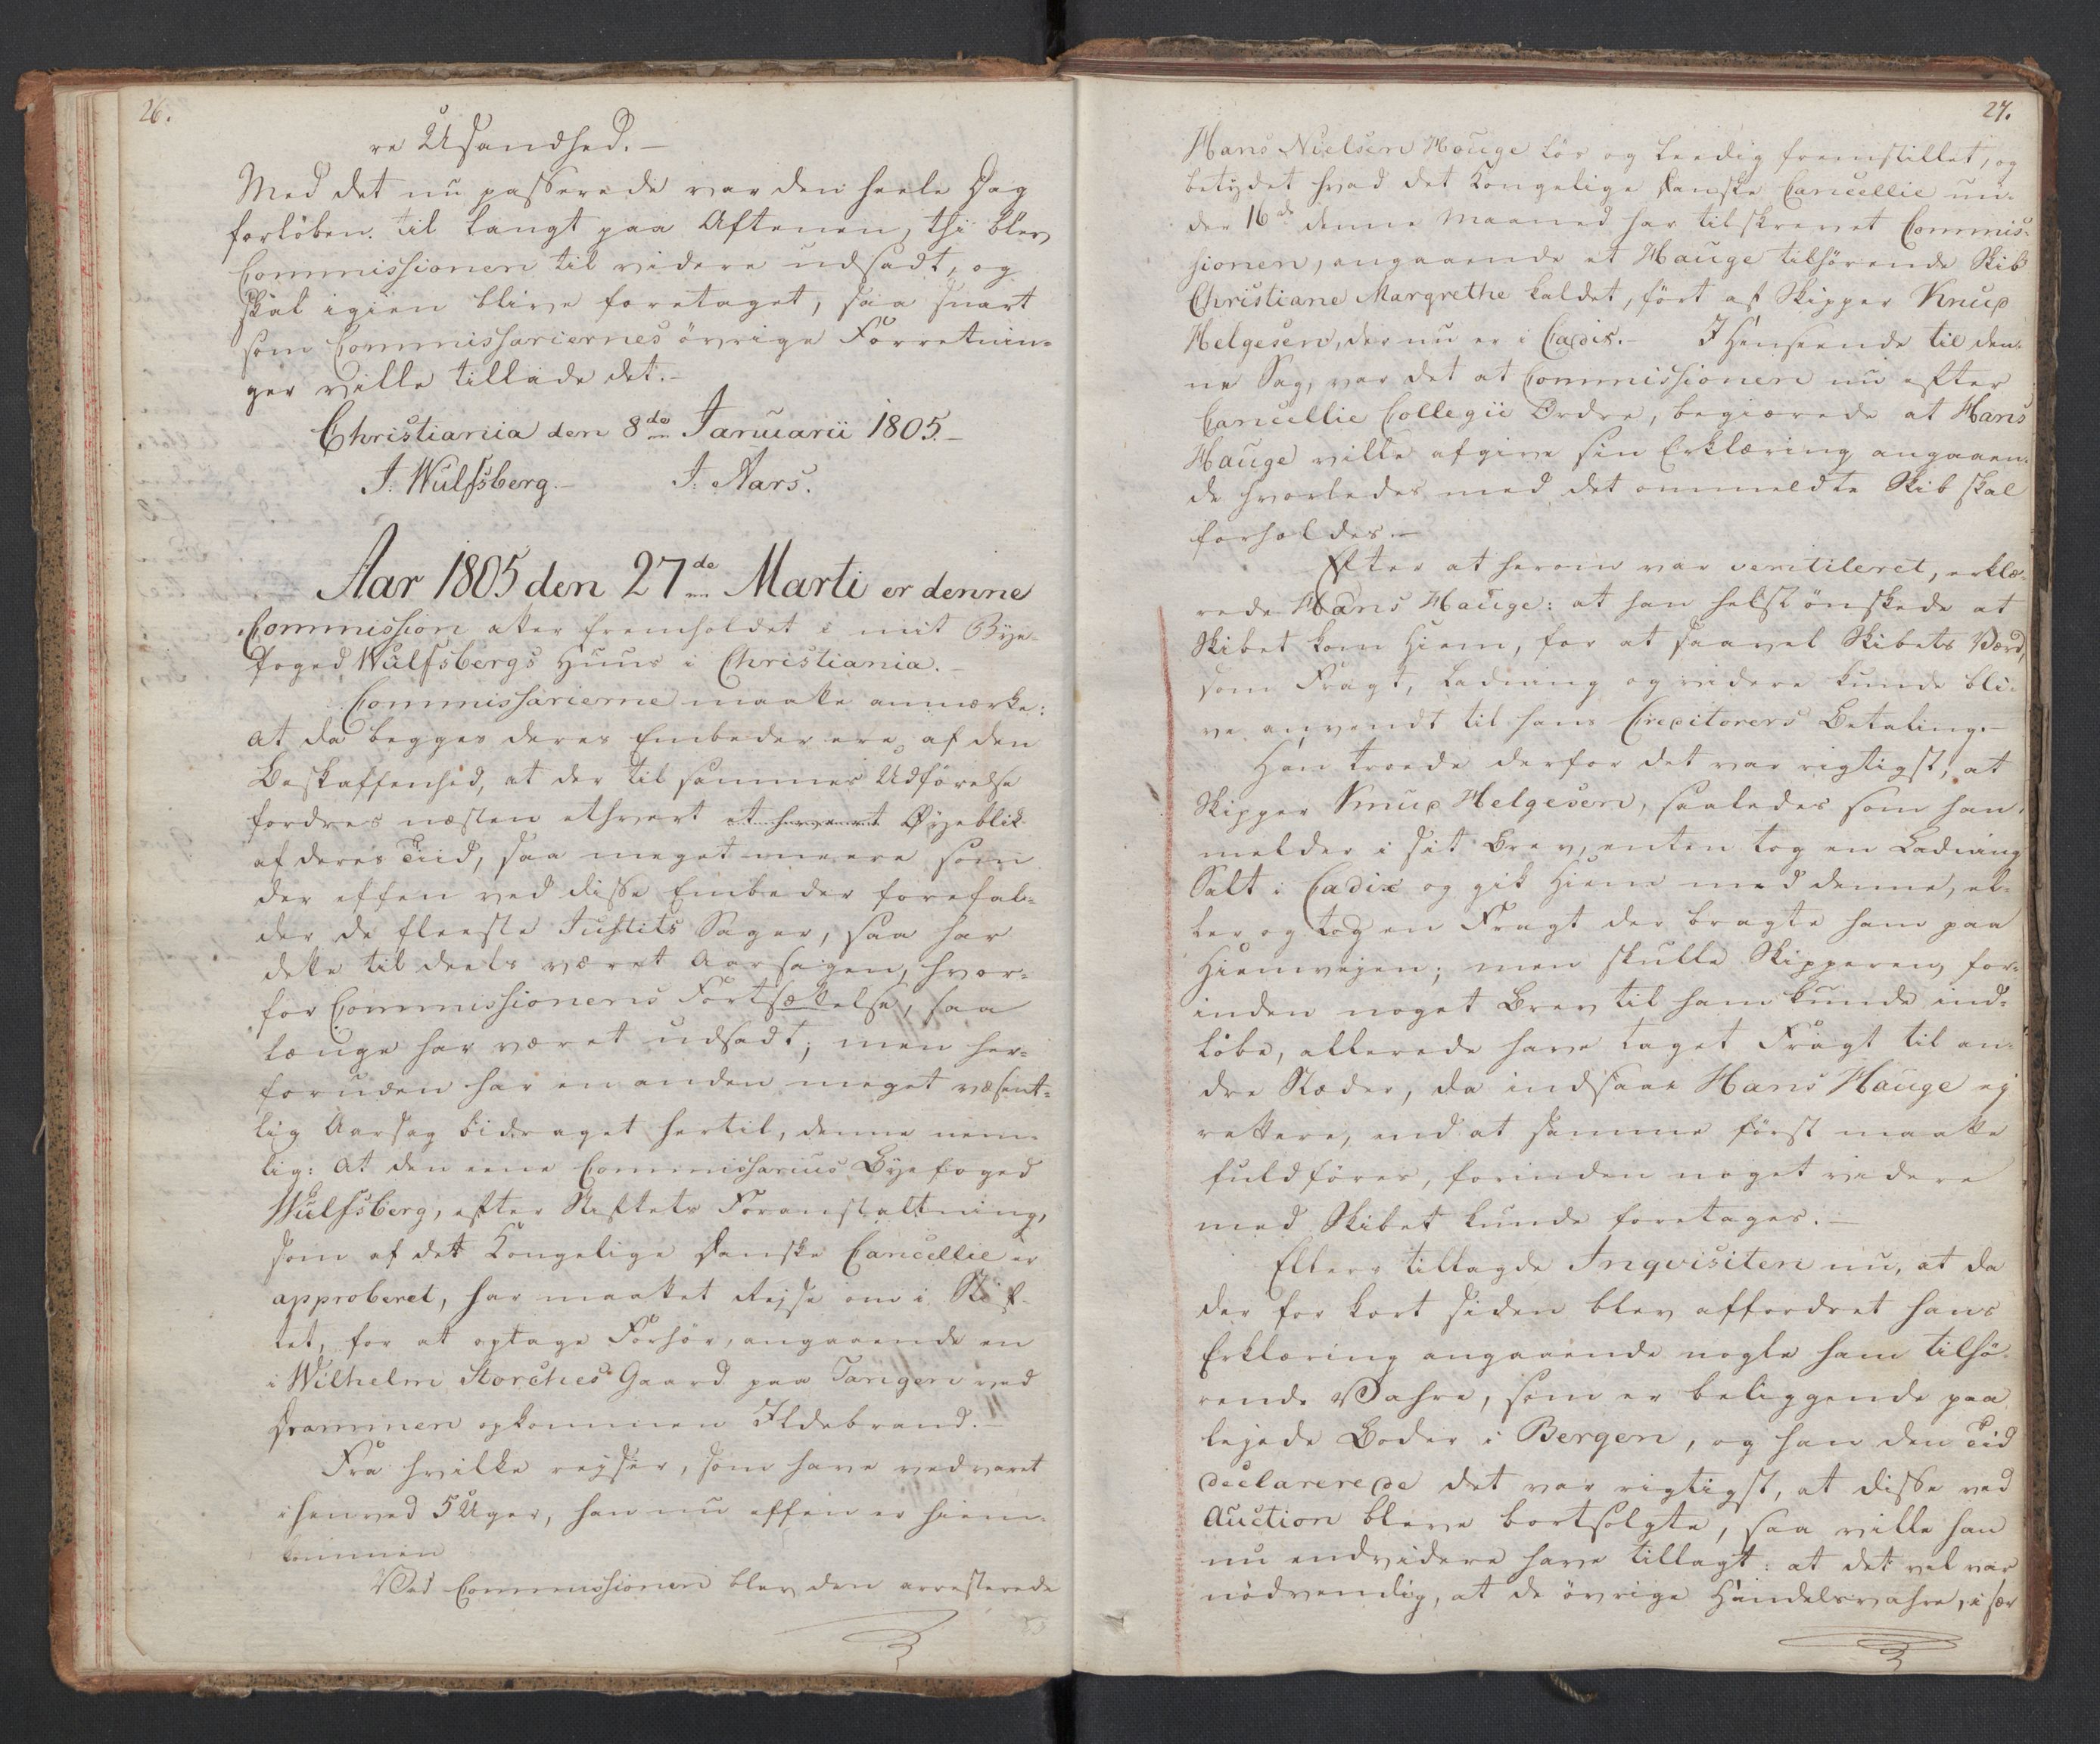 26.
re Usandhed. –
Med det nu passerede var den heele Dag
forløben til langt paa Aftenen, thi blev
Commissionen til videre udsadt, og
skal igien blive foretaget, saa snart
som Commissariernes øvrige Forretnin-
ger ville tillade det. –
Christiania den 8de Januarii 1805. –
J. Wulfsberg. – J. Aars.
Aar 1805 den 27de Marti er denne
Commission atter fremholdet i mit Bye-
foged Wulfsbergs Huus i Christiania. –
Commissarierne maatte anmærke:
at da begges deres Embeder ere af den
Beskaffenhed, at der til sammes Udførelse
fordres næsten ethvert et hvert Øyeblik
af deres Tiid, saa meget meere som
der offen ved disse Embeder forefal-
der de fleeste Justits Sager, saa har
dette til deels været Aarsagen, hvor-
for Commissionens Fortsættelse, saa
længe har været udsadt; men her-
foruden har en anden meget væsent-
lig Aarsag bidraget hertil, denne nem-
lig: at den eene Commissarius Byefoged
Wulfsberg, efter Stiftets Foranstaltning,
som af det Kongelige danske Cancellie er
approberet, har maattet Rejse om i Stif-
tet, for at optage Forhør, angaaende en
i Wilhelm Storches Gaard paa Tangen ved
Drammen opkommen Ildebrand. –
Fra hvilke rejser, som have vedvaret
i henved 5 Uger, han nu offen er hiem-
kommen
Ved Commissionen blev den arresterede
27.
Hans Nielsen Hauge løs og leedig fremstillet, og
betydet hvad det Kongelige danske Cancellie un-
der 16de denne Maaned har tilskrevet Commis-
sionen, angaaende et Hauge tilhørende Skib
Christiane Margrethe kaldet, ført af Skipper Knud
Helgesen, der nu er i Cadix. – I Henseende til den-
ne Sag, var det at Commissionen nu efter
Cancellie Collegii Ordre, begiærede at Hans
Hauge ville afgive sin Erklæring angaaen-
de hvorledes med det ommeldte Skib skal
forholdes. –
Efter at herom var ventileret, erklæ-
rede Hans Hauge: at han helst ønskede at
Skibet kom hiem, for at saavel Skibets Værd,
som Fragt, Ladning og videre kunde bli-
ve anvendt til hans Creditorers Betaling. –
Han troede derfor det var rigtigst, at
Skipper Knud Helgesen, saaledes som han
melder i sit Brev, enten tog en Ladning
Salt i Cadix og gik hiem med denne, el-
ler og tog en Fragt der bragte ham paa
Hiemvejen; men skulle Skipperen, for-
inden noget Brev til ham kunde ind-
løbe, allerede have taget Fragt til an-
dre Stæder, da indsaae Hans Hauge ej
rettere, end at samme først maatte
fuldføres, forinden noget videre
med Skibet kunde foretages. –
Ellers tillagde Inqvisiten nu, at da
der for kort siden blev affordret hans
Erklæring angaaende nogle ham tilhø-
rende Vahre, som er beliggende paa
lejede Boder i Bergen, og han den Tid
declarerede det var rigtigst, at disse ved
Auction bleve bortsolgte, saa ville han
nu endvidere have tillagt: at det vel var
nødvendig, at de øvrige Handelsvahre, i sær